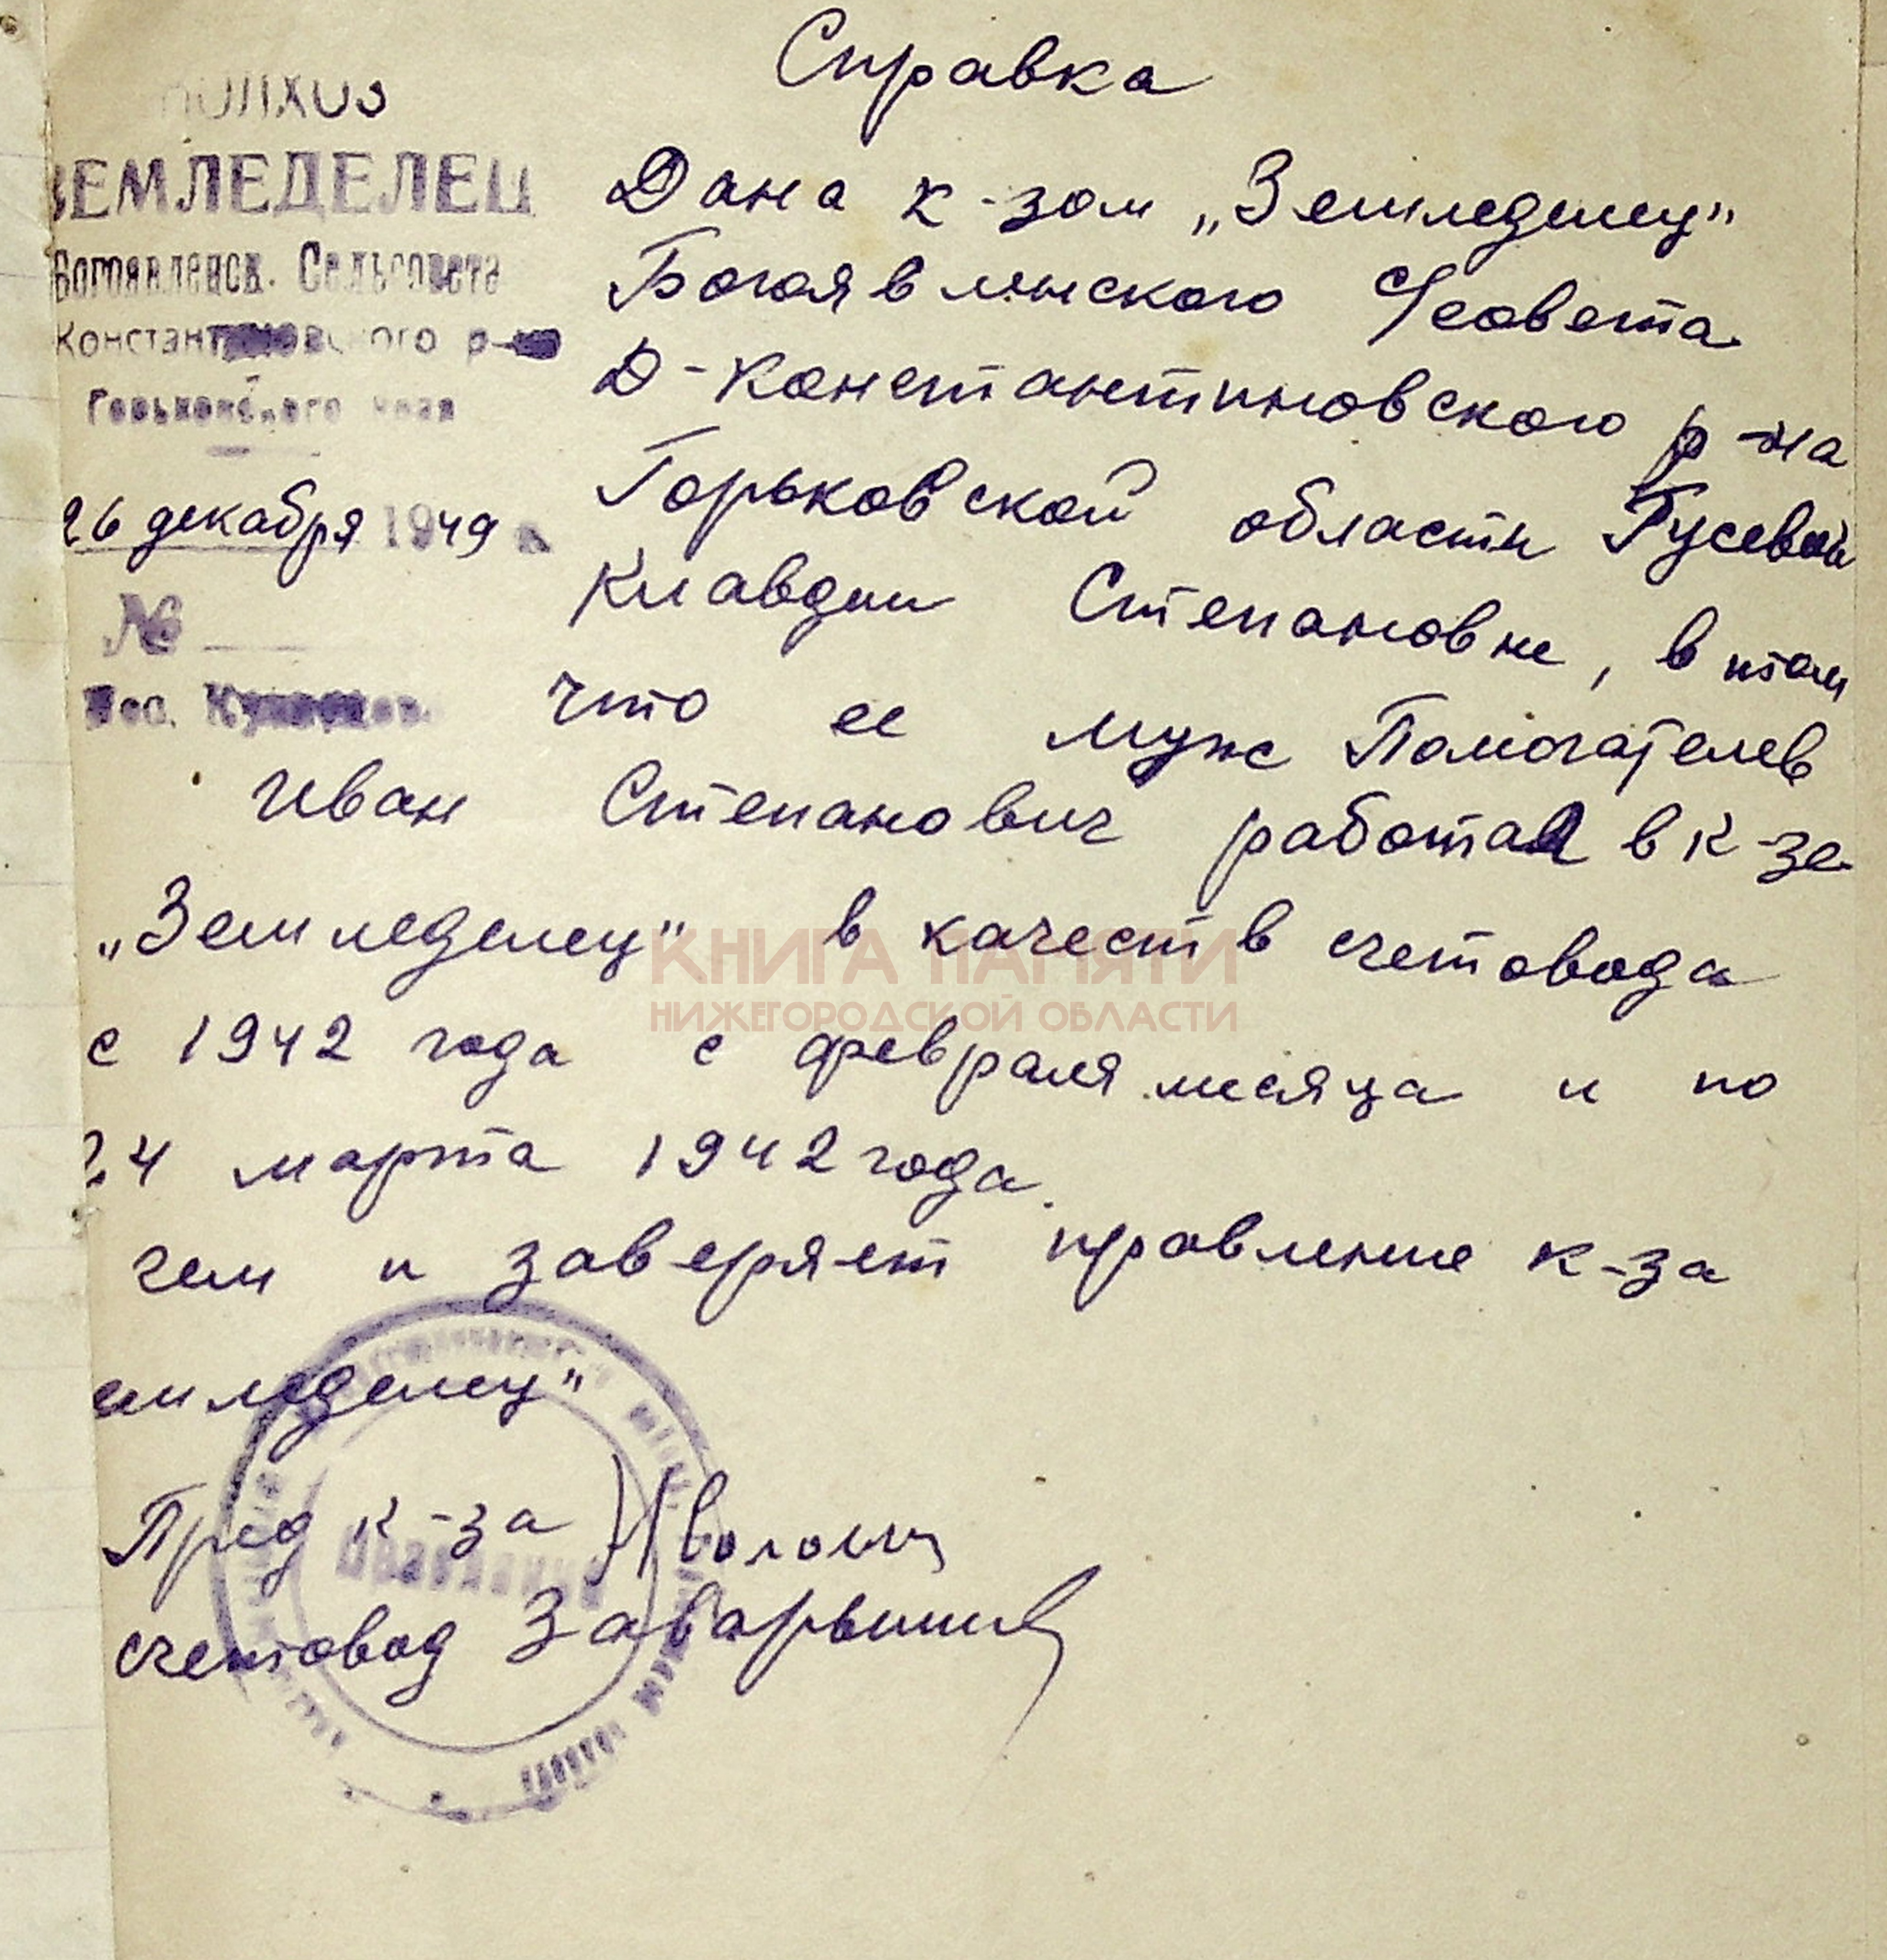 Справка
колхоз
ЗЕМЛЕДЕЛЕЦ
Богоявленск. Сельсовета
Константиновского р-на
Горьковского края
26 декабря 1949
№
Дана к-зом „Земледелец"
Богоявленского С/совета
Д-Константиновского р-на
Горьковской области Гусевой
Клавдии Степановне, в том
что ее муж Помогателев
Иван Степанович работал в к-зе
„Земледелец" в качеств счетовода
с 1942 года с февраля месяца и по
24 марта 1942 года.
чем и заверяет правление к-за
емледелец"
Пред к-за
счетовод
Правление
КНИГА ПАМЯТИ
НИЖЕГОРОДСКОЙ ОБЛАСТИ